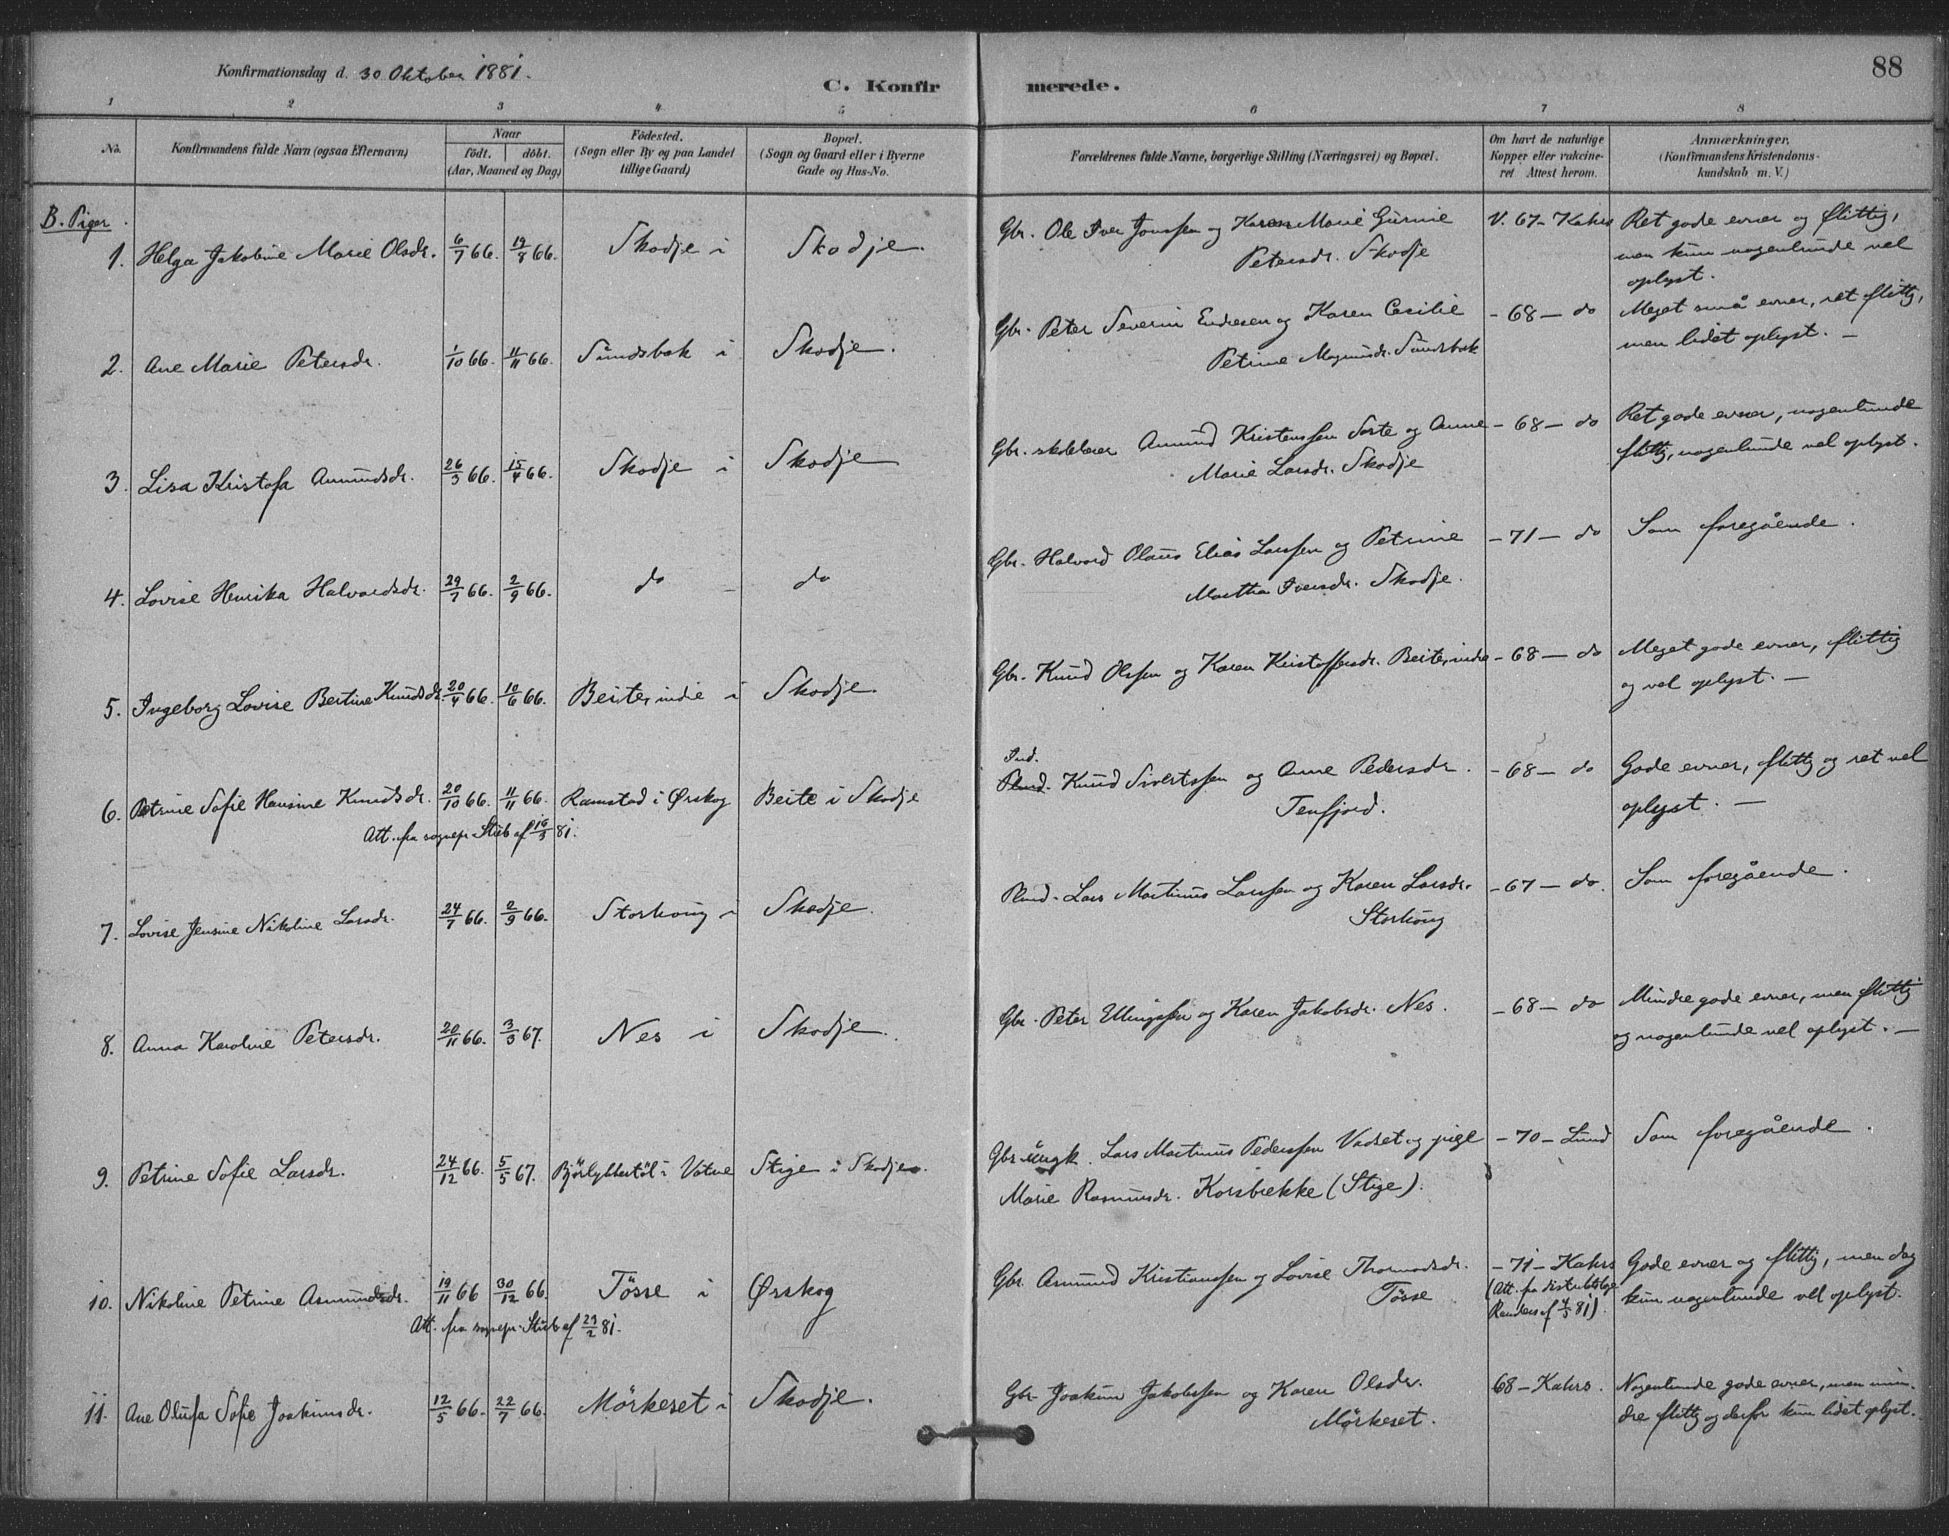 Konfirmationsdag d. 30 Oktober 1881.
C. Konfirmerede.
88
1 2 3 4 5 6 7 8
No.
Konfirmandens fulde Navn (ogsaa Efternavn)
Naar
født. døbt.
(Aar, Maaned og Dag)
Fødested.
(Sogn eller By og paa Landet
tillige Gaard)
Bopæl.
(Sogn og Gaard eller i Byerne
Gade og Hus-No.
Forældrenes fulde Navne, borgerlige Stilling (Næringsvei) og Bopæl.
Om havt de naturlige
Kopper eller vakcine-
ret Attest herom.
Anmærkninger.
(Konfirmandens Kristendoms-
kundskab m. V.)
B. Piger.
1. Helga Jakobine Marie Olsdr. 6/7 66. 19/8 66. Skodje i Skodje. Gbr. Ole Iver Jonssen og Karen Marie Gurine V. 67 - Kahrs Ret gode evner og flittig,
Petersdr. Skodje men kun nogenlunde vel
oplyst.
2. Ane Marie Petersdr. 1/10 66. 11/11 66. Sundsbak i Skodje. Gbr. Peter Severin Endresen og Karen Cecilie - 68 - do Meget små evner, ret flittig,
Petrine Magnusdr. Sundsbak men lidet oplyst. -
3. Lisa Kristofa Amundsdr. 26/3 66. 15/4 66. Skodje i Skodje Gbr. skolelærer Amund Kristenssen Sorte og Anne - 68 - do Ret gode evner, nogenlunde
Marie Larsdr. Skodje flittig, nogenlunde vel oplyst.
4. Lovise Henrika Halvardsdr. 29/7 66. 2/9 66. do - do Gbr. Halvard Olaus Elias Larssen og Petrine - 71 - do Som foregående.
Martha Iversdr. Skodje.
5. Ingeborg Lovise Bertine Knudsdr. 20/4 66. 10/6 66. Beite, indre i Skodje. Gbr. Knud Olssen og Karen Kristoffersdr. Beite, indre - 68 - do Meget gode evner, flittig
og vel oplyst. -
6. Petrine Sofie Hansine Knudsdr. 20/10 66. 11/11 66. Ramstad i Ørskog Beite i Skodje Ind. Knud Sivertssen og Anne Pedersdr. - 68 - do Gode evner, flittig og ret vel
Att. fra sognepr. Stub af 16/3 81. Tenfjord. oplyst. -
7. Lovise Jensine Nikoline Larsdr. 24/7 66. 2/9 66. Storhaug i Skodje. Plads. Lars Martinus Larssen og Karen Larsdr. - 67 - do. Som foregående.
Storhaug
8. Anna Karoline Petersdr. 20/11 66. 3/3 67. Nes i Skodje. Gbr. Peter Ellingssen og Karen Jakobsdr. Nes. - 68 - do Mindre gode evner, men flittig
og nogenlunde vel oplyst. -
9. Petrine Sofie Larsdr. 24/12 66. 5/5 67. i Vatne Stige i Skodje. Gbr. ungk. Lars Martinus Pederssen Vadset og pige - 70 - Lund Som foregående.
Marie Rasmusdr. Korsbrekke (Stige).
10. Nikoline Petrine Asmundsdr. 19/11 66 30/12 66. Tösse i Ørskog Gbr. Asmund Kristianssen og Lovise Thormodsdr. - 71 - Kahrs Gode evner og flittig, men dog
Att. fra sognepr. Stub af 23/2 81. Tösse (Att. fra distriktslæge kun nogenlunde vel oplyst.
Randers af 4/3 81).
11. Ane Olufa Sofie Joakimsdr. 12/5 66. 22/7 66. Mörkeset i Skodje. Gbr. Joakim Jakobssen og Karen Olsdr. 68 - Kahrs. Nogenlunde gode evner, men min-
Mörkeset. dre flittig og derfor kun lidet oplyst.